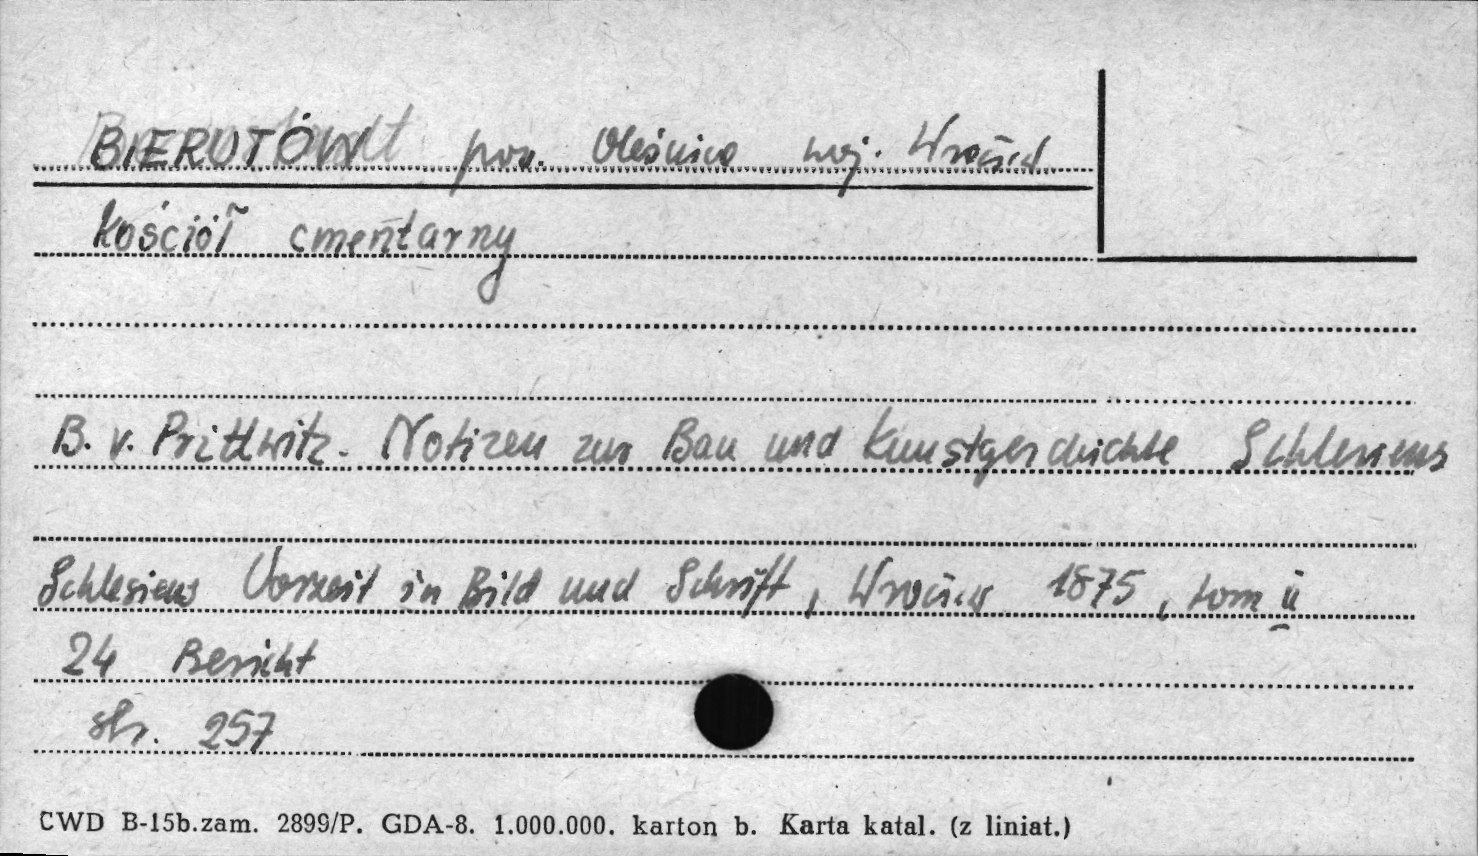 BIERUTÓW pow. Oleśnica woj. Wrocław
Kościół cmentarny
B. v. Prittwitz. Notizen zur Bau und Kunstgeschichte Schlesiens
Schlesiens Vorzeit in Bild und Schrift, Wrocław 1875, tom II
24 Bericht
str. 257
CWD B-15b.zam. 2899/P. GDA-8. 1.000.000. karton b. Karta katal. (z liniat.)